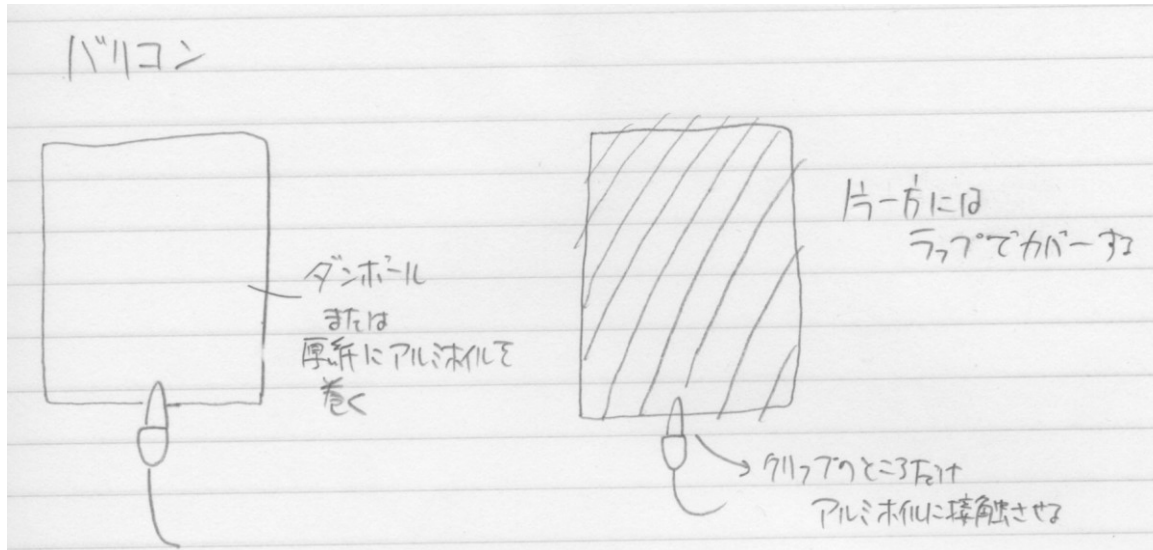 バリコン
ダンボール
または
厚紙にアルミホイルを
巻く
片一方には
ラップでカバーする
クリップのところだけ
アルミホイルに接触させる